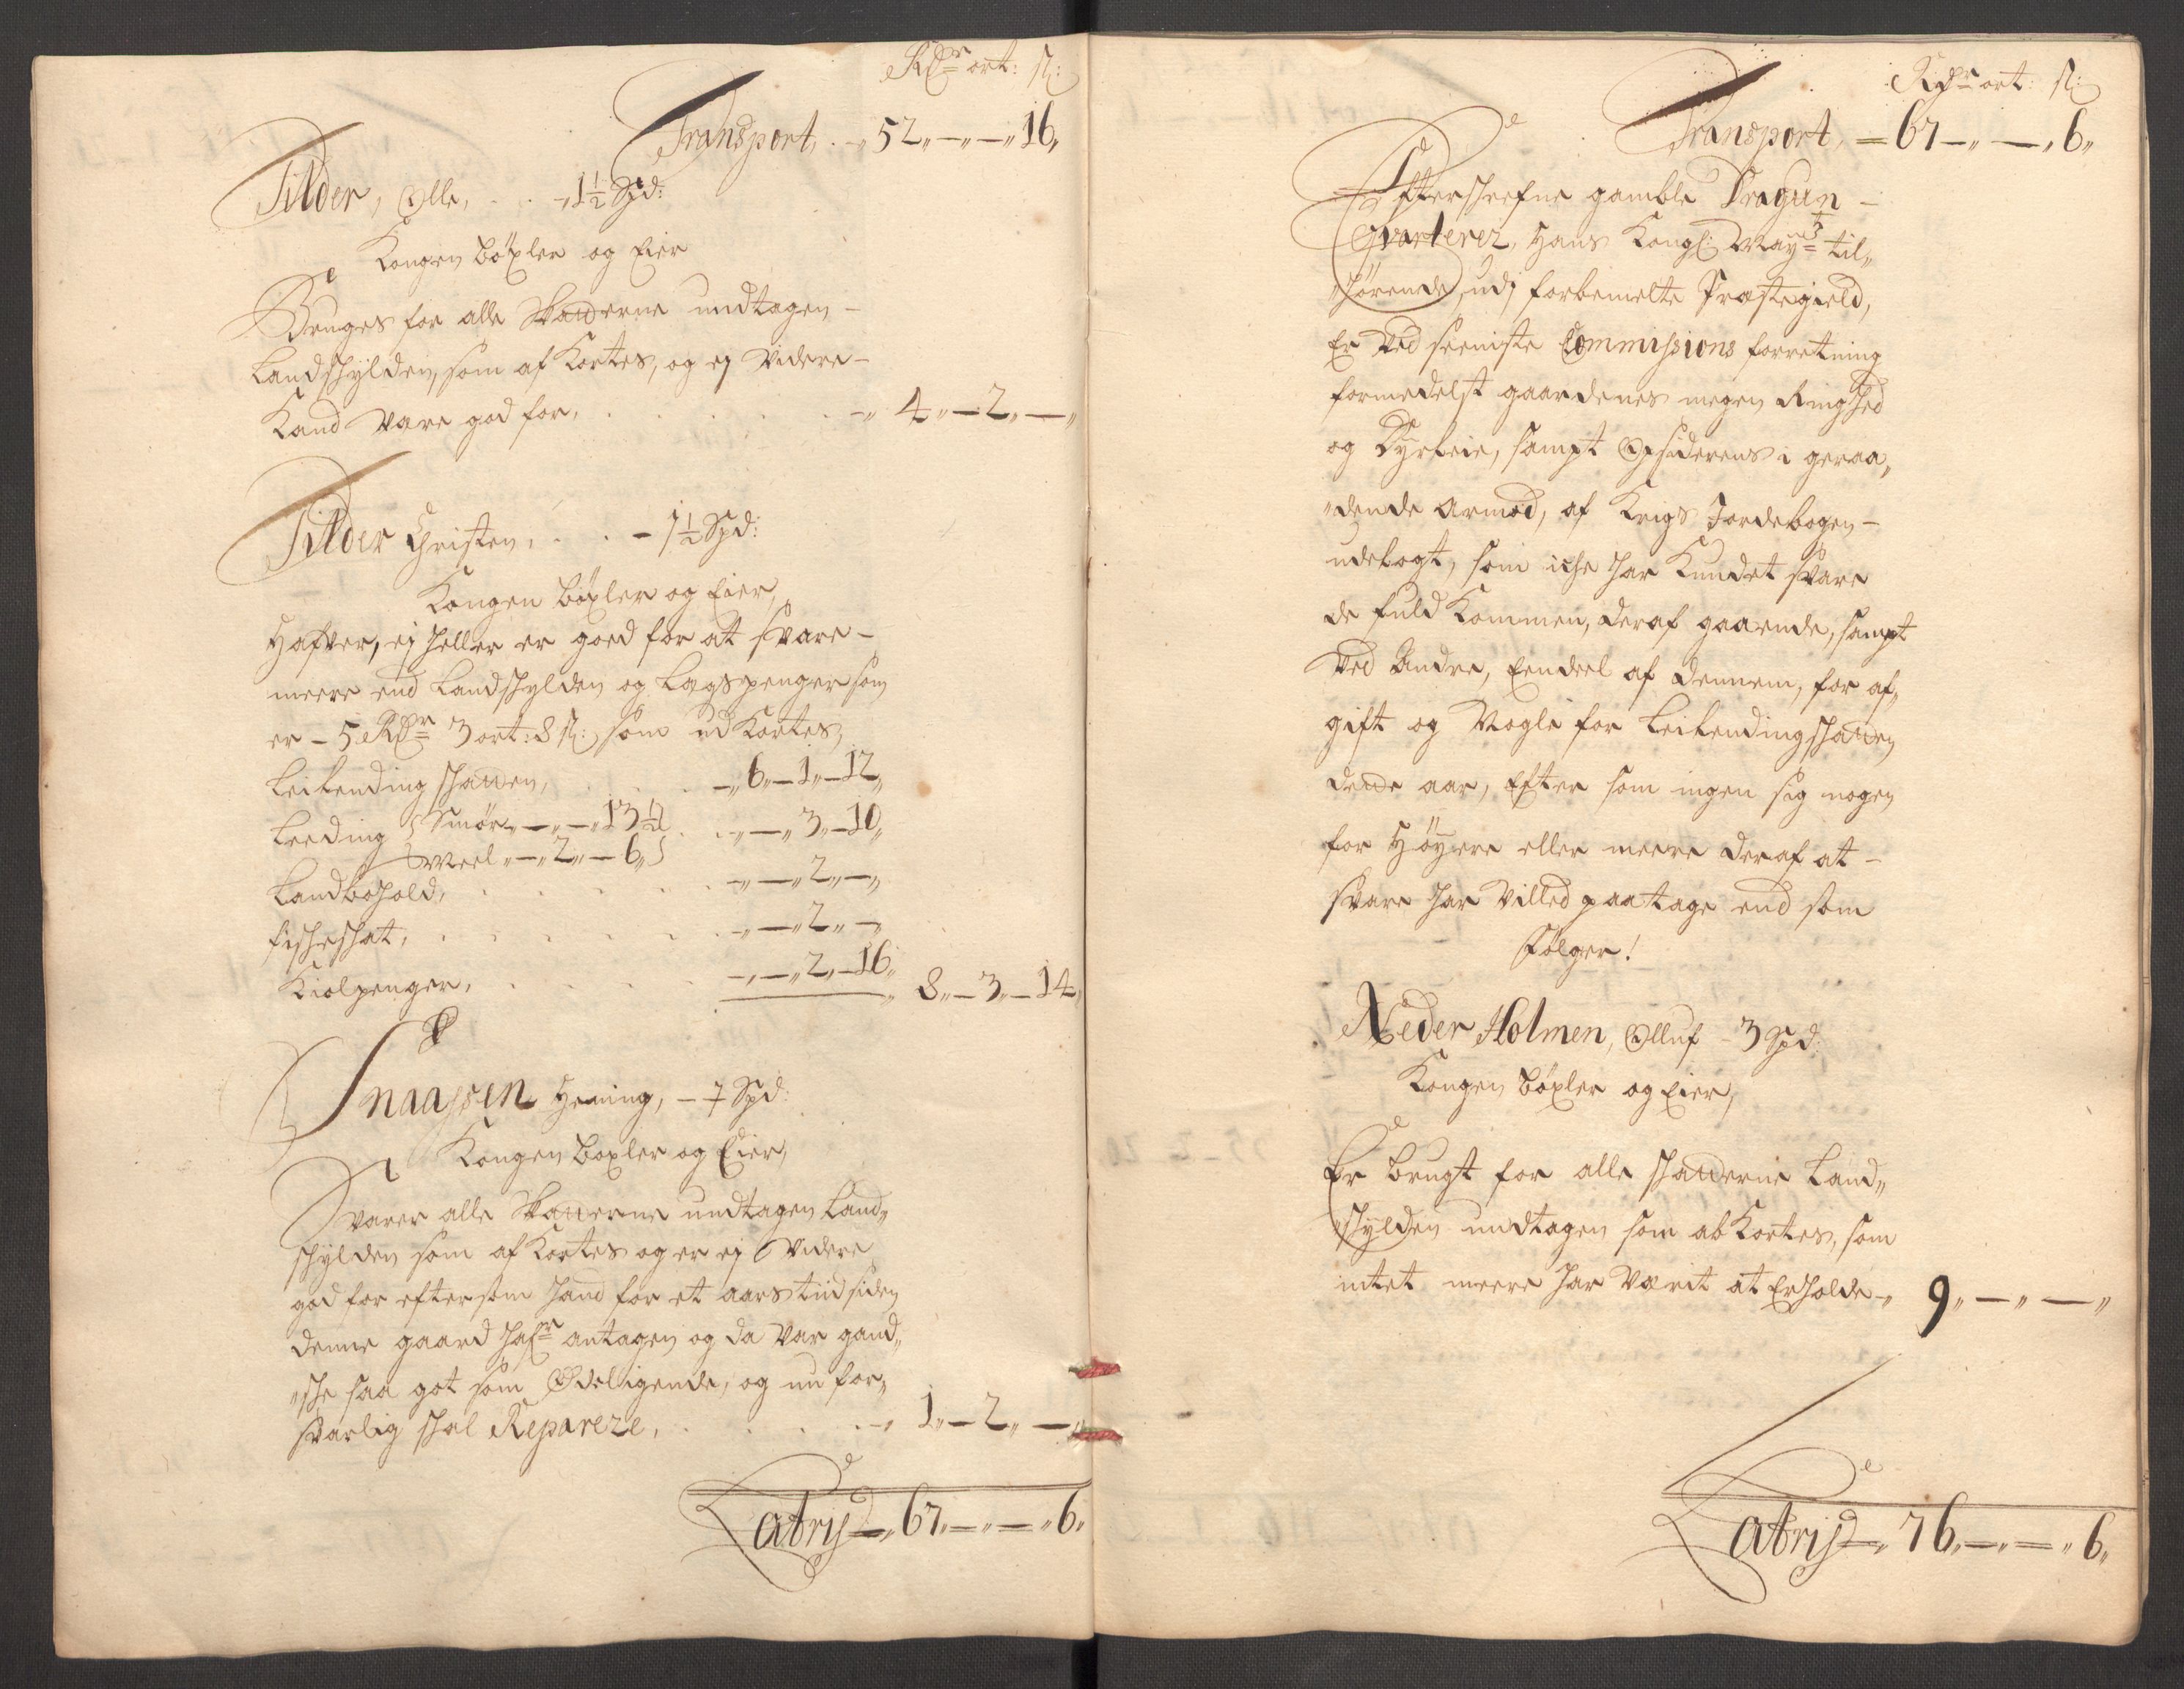 Rdr ort: s:
Transport, . -„ 52„ - „ - „ 16„
Tilder, Olle, . . -„ 1 1/2 Spd:
Kongen böxler og Eier
Bruges for alle Skatterne undtagen -
Landskylden, som af Kortes, og ej Videre -
Kand Være god for, . . . . . . -„ 4„ - 2„ - „
Tilder Christen, . . . - 1 1/2 Spd:
Kongen böxler og Eier,
Hafver, ej heller er goed for at Svare -
meere end Landskylden og Laugspenger som
er - 5 Rdr 3 ort: 8 s: som ud Kortes,
Leilending skatten, . . . . -„ 6„ - 1„ - 12„
Leeding { Smör„ - „ - „ 13 1/2 } . . -„ - „ 3„ - 10„
Meel„ - „ 2„ - 6„
Landbohold, . . . . . -„ - „ 2„ - „
fischeskat, . . . . . . -„ - „ 2„ - „
Kiölpenger, . . . . . -„ - „ 2„ - 16„ 8„ - 3„ - 14„
Snaasen Hening, - 7 Spd:
Kongen boxler og Eier,
Svarer alle Skatterne undtagen Land„
skylden som af Kortes og er ej Videre
god for eftersom hand for et aars tiid siden
denne gaard hafr antagen og da Var gand„
„ske saa got som Ödeligende, og nu for„
svarlig skal Reparere, . . . . -„ 1„ - 2„ - „
Latris -„ 67„ - „ - „ 6„
Rdr ort: s:
Transport, = 67 - „ - „ 6„
Efterskrefne gamble Dragun -
Qvarterer, Hans Kongl: Mayts til„
„hörende, udj forbemelte Præstegield,
Er Ved seeniste Commissions forretning
formedelst gaardenes megen Ringhed
og Dyrleie, sampt Opsiderens i geraa„
„dende Armod, af Krigs Jordebogen -
udelagt, som iche har Kundet svare
de fuld Kommen, deraf gaaende, sampt
Ved Andre, Eendeel af dennem, for af„
gift og Nogle for Leilendingskatten
dette aar, Efter som ingen sig nogen
for Höyere eller meere deraf at -
svare har Villed paatage end som
Fölger!
Neder Holmen, Olluf - 3 Spd:
Kongen böxler og Eier,
Er brugt for alle skatterne Land„
skylden undtagen som abKortes, som
intet meere har Værit at Erholde -„ 9„ - „ - „
Latris -„ 76„ - „ - „ 6„